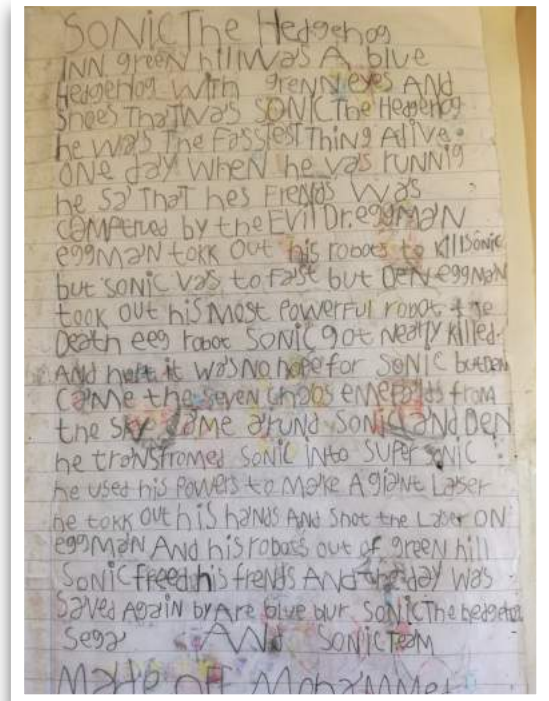 SONIC The Hedgehog
INN green hill Was A blue
Hedgehog With grenn eyes AND
Shoes That Was SONIC The Hedgehog
he Was The Fasstest Thing Alive.
ONE day When he vas runnig
he Sa That hes Frends Was
by the Evil Dr. eggMAN
eggMAN tokk Out his robots to kill Sonic
but SONIC Vas to Fast but DeN eggMaN
took out his Most Powerful robot the
Death eeg robot SONIC got Nearly killed.
And it was No hope for SONIC but Den
Came the seven Chaos emeralds from
the sky Came arund SonIC and Den
he transfromed SONIC into SUPER SONIC
he used his Powers to Make A giant Laser
he tokk Out his hands And Shot the Laser ON
eggMaN And his robots out of green hill
SONIC freed his frends And the day Was
Saved Again by Are blue blur SONIC The hedgehog
Sega AND SONIC TEAM
Made off Mohammet